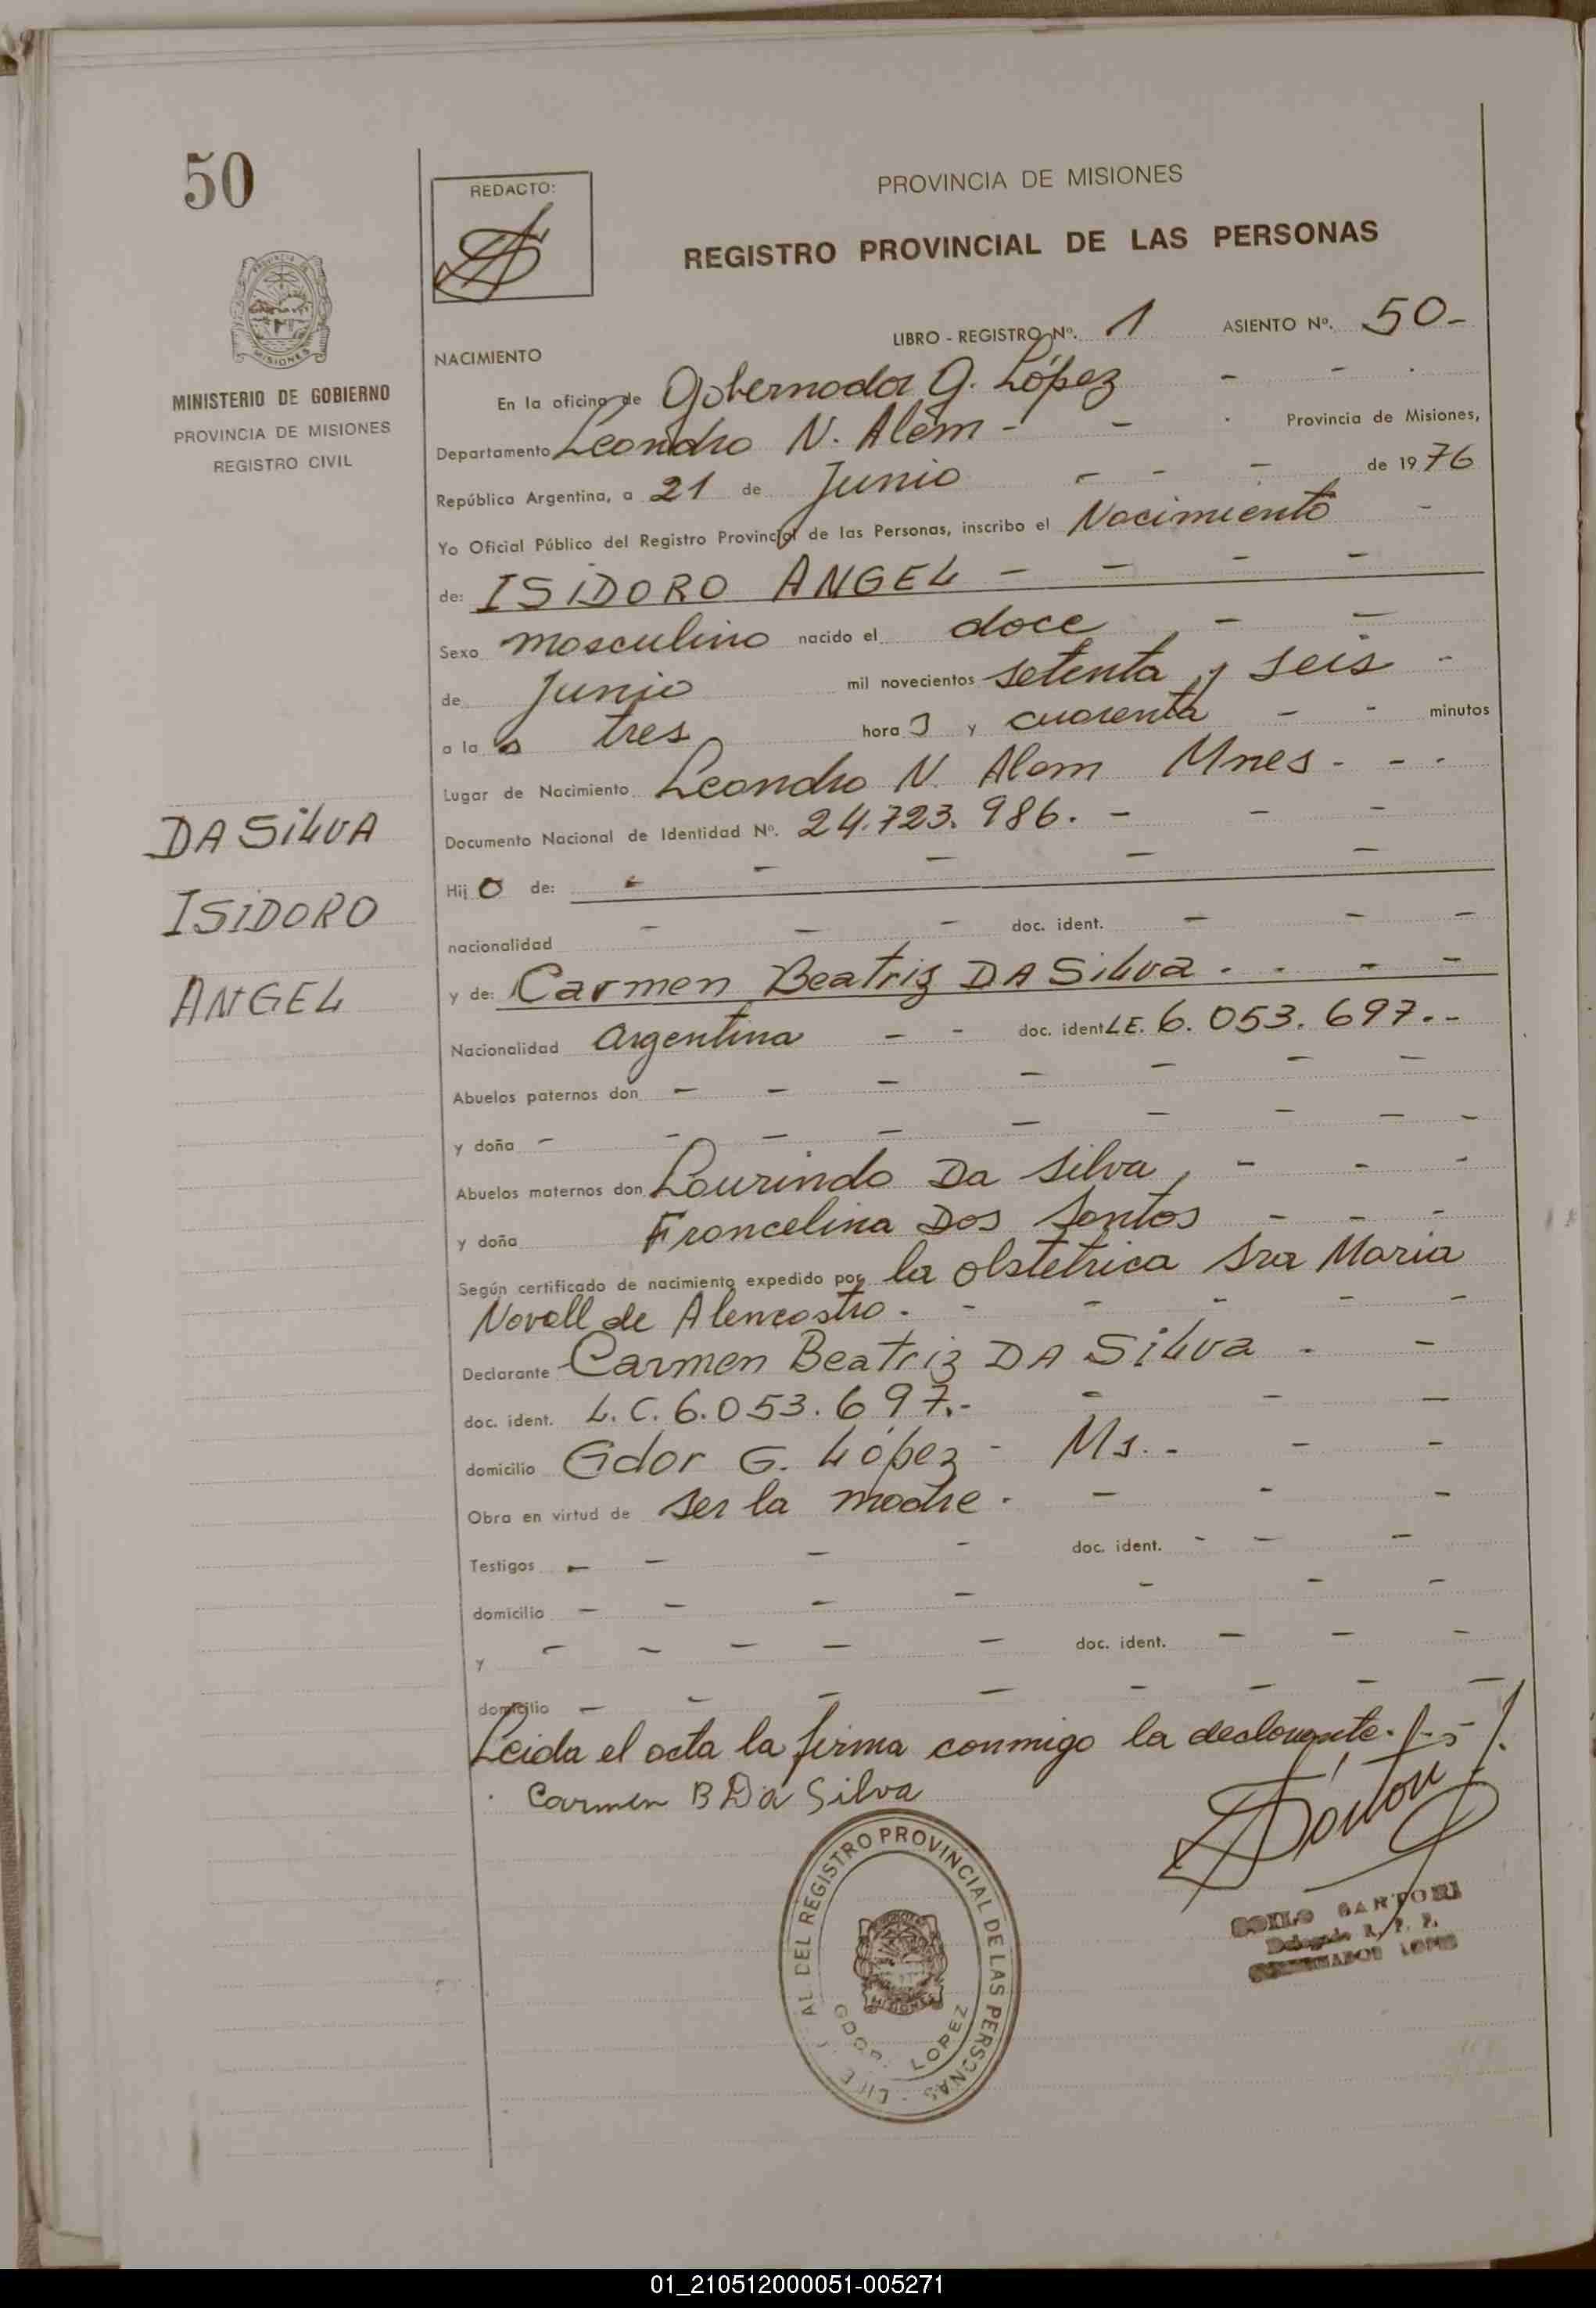 50
REDACTO:
PROVINCIA DE MISIONES
REGISTRO PROVINCIAL DE LAS PERSONAS
MINISTERIO DE GOBIERNO
PROVINCIA DE MISIONES
REGISTRO CIVIL
LIBRO - REGISTRO Nº. 1 ASIENTO Nº. 50-
NACIMIENTO
En la oficina de Gobernador G. López - - .
Departamento Leandro N. Alem - - . Provincia de Misiones,
República Argentina, a 21 de Junio - - - de 1976
Yo Oficial Público del Registro Provincial de las Personas, inscribo el Nacimiento -
de: ISIDORO ANGEL - - - -
Sexo masculino nacido el doce - -
de Junio mil novecientos setenta y seis -
a las tres horas y cuarenta - - minutos
Lugar de Nacimiento Leandro N. Alem Mnes - - -
Documento Nacional de Identidad Nº. 24.723.986. - - -
Hijo de: - - - - -
nacionalidad - - - doc. ident. - - -
y de: Carmen Beatriz DA SILVA . . - -
Nacionalidad Argentina - - doc. ident LE. 6.053.697.-
Abuelos paternos don - - - - - - -
y doña - - - - - - - - -
Abuelos maternos don Lourindo Da Silva, - - -
y doña Francelina Dos Santos - - -
Según certificado de nacimiento expedido por la obstetrica Sra Maria
Novell de Alencastro. - - - - -
Declarante Carmen Beatriz DA SILVA - -
doc. ident. L.C. 6.053.697.- - - -
domicilio Gdor G. López - Ms. - - -
Obra en virtud de ser la madre . - - -
Testigos - - - - doc. ident. - - -
domicilio - - - - - - -
y - - - - - doc. ident. - - -
domicilio - - - - - - - -
Leida el acta la firma conmigo la declarante.
Carmen B Da Silva
DA SILVA
ISIDORO
ANGEL
AL DEL REGISTRO PROVINCIAL DE LAS PERSONAS
MISIONES
GDOR. LOPEZ
SARTORI
Delegado R. P. P.
GOBERNADOR LOPEZ
01_210512000051-005271